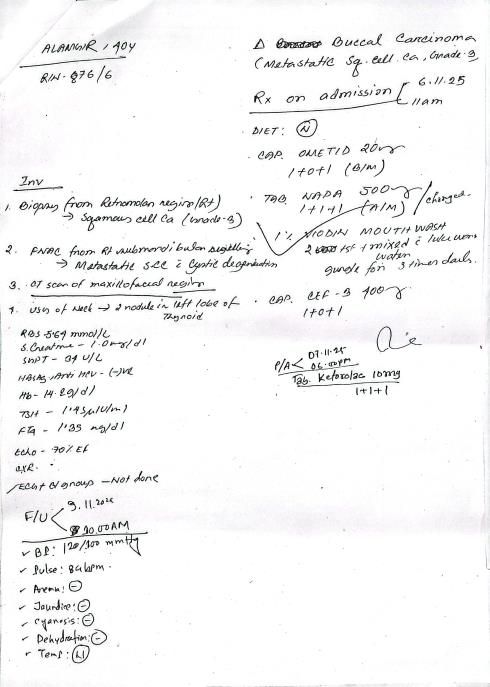 ALAMGIR, 40y
R/N - 876/6
Δ Buccal Carcinoma
(Metastatic Sq. cell. ca, Grade-3
Rx on admission 6.11.25
11am
DIET: N
CAP. OMETID 20mg
1+0+1 (B/M)
TAB. NAPA 500mg
1+1+1 (A/M) / changed
1% VIODIN MOUTH WASH
2 tsf + mixed c luke warm
water
gurgle for 3 times daily.
CAP. CEF-3 400mg
1+0+1
P/A 07.11.25
06.00pm
Tab. Ketorolac 10mg
1+1+1
Inv
1. Biopsy from Retromolar region (Rt)
→ Squamous cell ca (Grade-3)
2. FNAC from Rt submandibular
→ Metastatic SCC c cystic degeneration
3. CT scan of maxillofacial region
4. USG of Neck → 2 nodule in left lobe of
Thyroid
RBS - 5.64 mmol/L
S. Creatine - 1.0mg/dl
SGPT - 34 U/L
HBsAg, Anti HCV - (-)ve
Hb - 14.2g/dl
TSH - 1.45μIU/ml
FT4 - 1.35 ng/dl
Echo - 70% EF
CXR -
ECG + Bl group - Not done
F/U 9.11.2025
10.00AM
BP: 120/100 mmHg
Pulse: 84bpm.
Anemia: -
Jaundice: -
Cyanosis: -
Dehydration: -
Temp: N